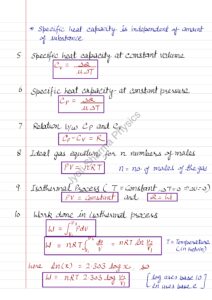 * Specific heat capacity is independent of amount
of substance
5 Specific heat capacity at constant volume
Cv = ΔQ / μΔT
6 Specific heat capacity at constant pressure
Cp = ΔQ / μΔT
7 Relation b/w Cp and Cv
Cp - Cv = R
8 Ideal gas equation for n numbers of moles
PV = nRT n = no of moles of the gas
9 Isothermal Process (T = Constant ΔT=0 ⇒ ΔU=0)
PV = Constant and Q = W
10 Work done in isothermal process
W = ∫ PdV
W = nRT ∫ dV/V = nRT ln V2/V1 T = Temperature
(in kelvin)
here ln(x) = 2.303 log x so
W = nRT 2.303 log V2/V1 (log uses base 10
ln uses base e)
Physics